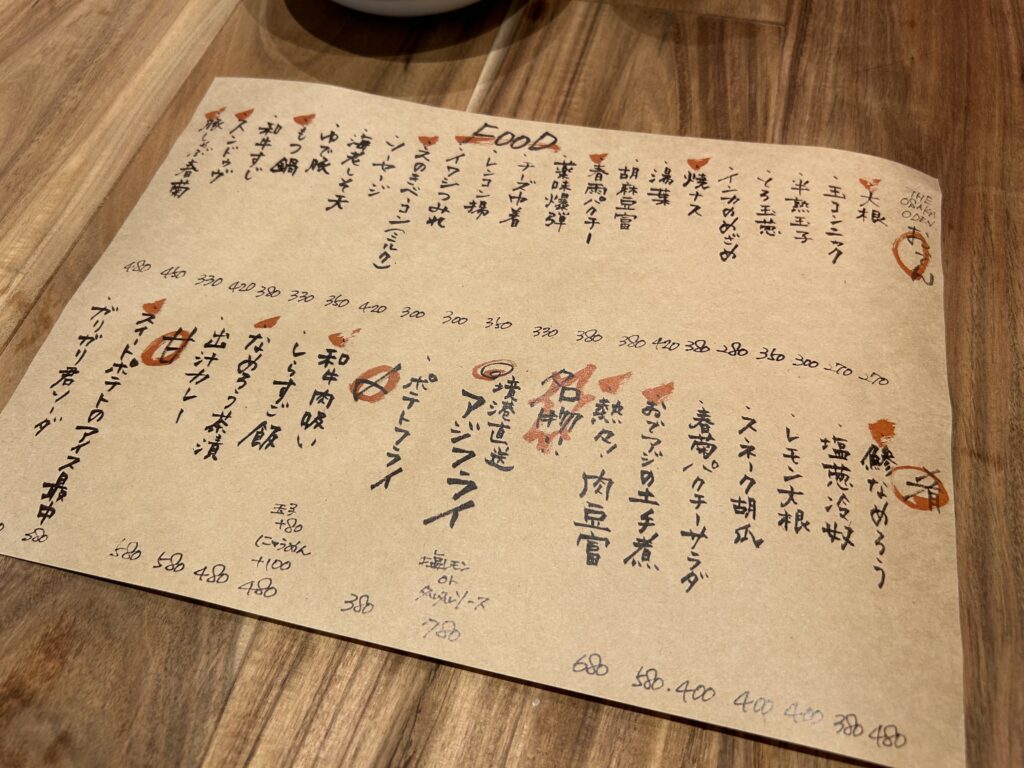 FOOD
THE OSAKA ODEN
おでん
・大根 270
・玉コンニャク 270
・半熟玉子 300
・とろ玉葱 350
・インカのめざめ 280
・焼ナス 380
・湯葉 420
・胡麻豆富 380
・春雨パクチー 380
・薬味爆弾 330
・チーズ巾着 350
・レンコン揚 300
・イワシつみれ 300
・えのきベーコン(ミルク) 420
・ソーセージ 350
・海老しそ天 330
・ゆで豚 380
・もつ鍋 420
・和牛すじ 330
・スンドゥヴ 450
・豚しゃぶ春菊 480
肴
・鯵なめろう 480
・塩葱冷奴 380
・レモン大根 400
・スネーク胡瓜 400
・春菊パクチーサラダ 400
・おでアジの土手煮 580
・熱々!肉豆富 680
名物!
◎境港直送
アジフライ
塩レモン
or
タルタルソース
780
・ポテトフライ 380
〆
・和牛肉吸い 480
玉子
+80
にゅうめん
+100
・しらすご飯 480
・なめろう茶漬 580
・出汁カレー 580
甘
・スイートポテトのアイス最中 580
・ガリガリ君ソーダ